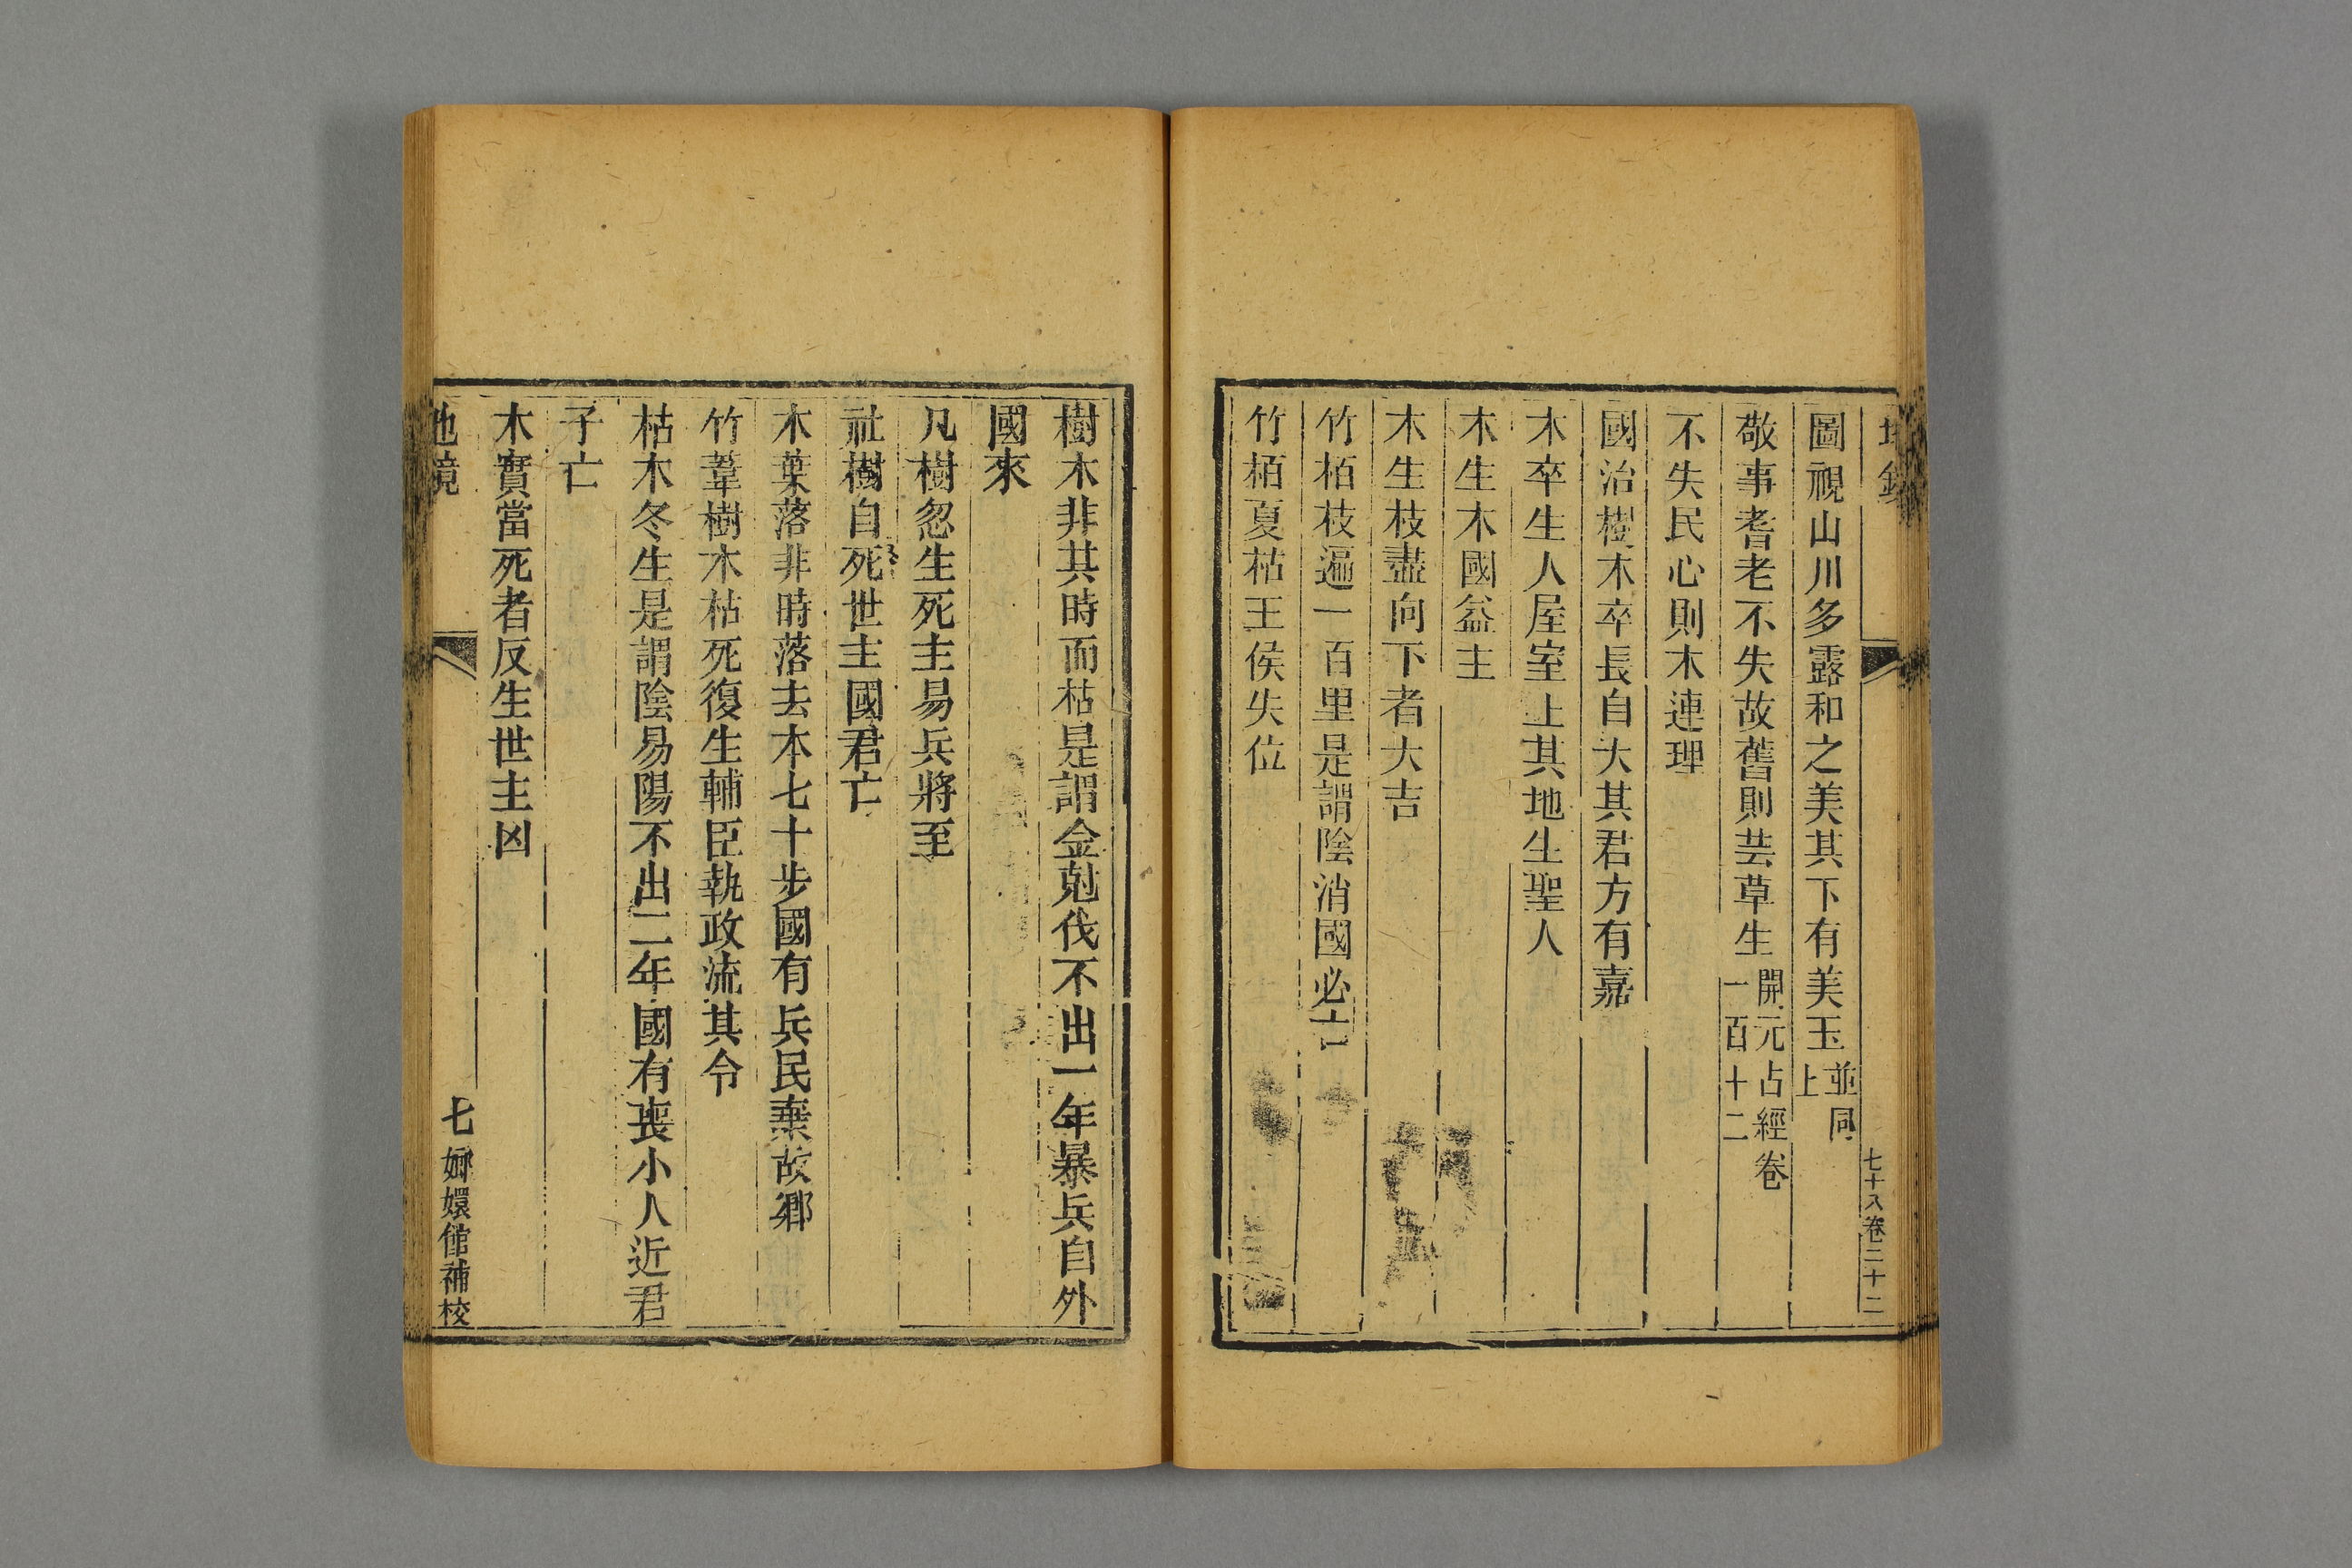 七十八卷二十二
圖視山川多露和之美其下有美玉並同上
敬事耆老不失故舊則芸草生開元占經卷一百十二
不失民心則木連理
國治樹木卒長自大其君方有嘉
木卒生人屋室上其地生聖人
木生木國益主
木生枝盡向下者大吉
竹栢枝遍一百里是謂陰消國必亡
竹栢夏枯王侯失位
樹木非其時而枯是謂金尅伐不出一年暴兵自外
國來
凡樹忽生死主易兵將至
社樹自死世主國君亡
木葉落非時落去本七十步國有兵民棄故鄉
竹葦樹木枯死復生輔臣執政流其令
枯木冬生是謂陰易陽不出二年國有喪小人近君
子亡
木實當死者反生世主凶
地鏡 七 嫏嬛館補校